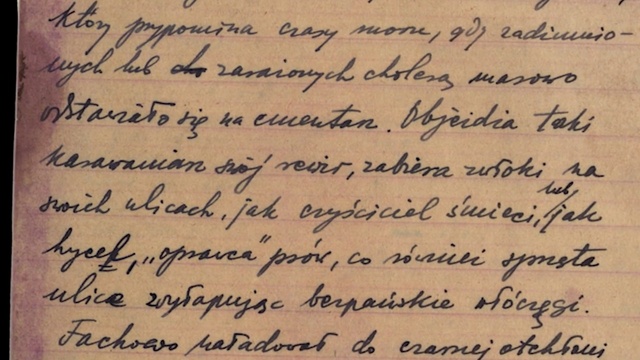 który przypomina czasy moru, gdy zadżumio-
nych lub zarażonych cholerą masowo
odstawiało się na cmentarz. Objeżdża taki
karawaniarz swój rewir, zabiera zwłoki na
swoich ulicach, jak czyściciel śmieci, lub, jak
hycel, „oprawca" psów, co również sprząta
ulice wyłapując bezpańskie włóczęgi.
Fachowo naładował do czarnej otchłani